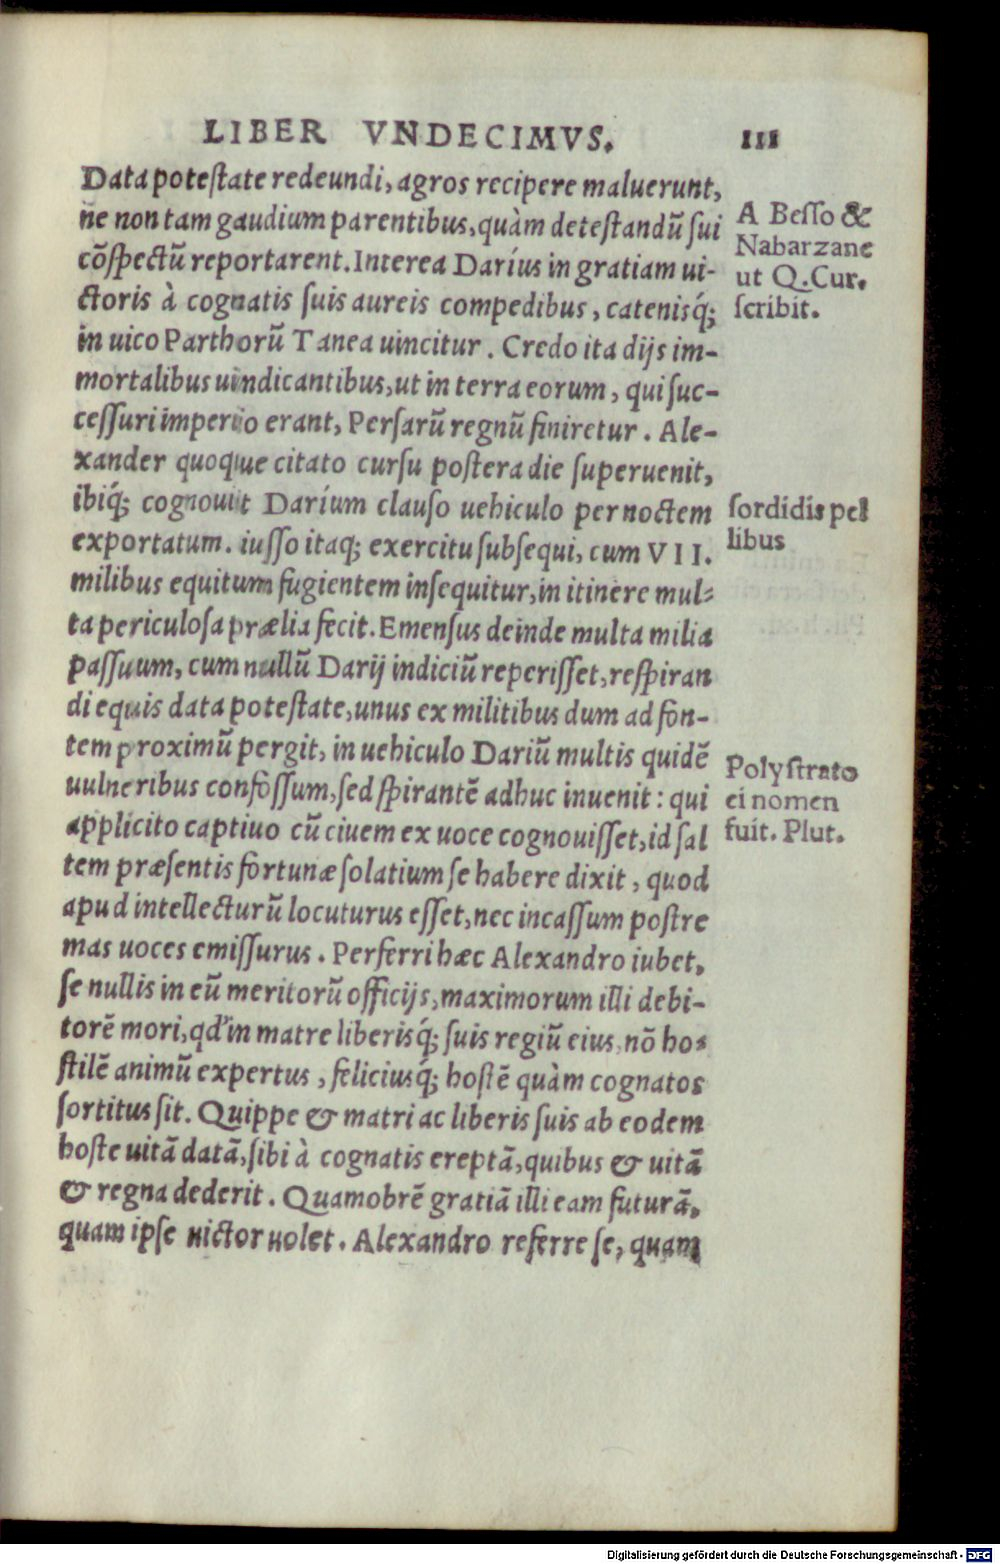 LIBER VNDECIMVS. 111
Data poteſtate redeundi, agros recipere maluerunt,
ne non tam gaudium parentibus, quàm deteſtandũ ſui
cõſpectũ reportarent. Interea Daríus in gratiam ui-
ctoris à cognatis ſuis aureis compedibus, catenisq́;
in uico Parthorũ Tanea uincitur. Credo ita dijs im-
mortalibus uindicantibus, ut in terra eorum, qui ſuc-
ceſſuri imperio erant, Perſarũ regnũ finiretur. Ale-
xander quoque citato curſu poſtera die ſuperuenit,
ibiq́; cognouit Daríum clauſo uehiculo per noctem
exportatum. iuſſo itaq; exercitu ſubſequi, cum VII.
milibus equitum fugientem inſequitur, in itinere mul-
ta periculoſa prælia fecit. Emenſus deinde multa milia
paſſuum, cum nullũ Darij indiciũ reperiſſet, reſpiran
di equis data poteſtate, unus ex militibus dum ad fon-
tem proximũ pergit, in uehiculo Dariũ multis quidẽ
uulneribus confoſſum, ſed ſpirantẽ adhuc inuenit: qui
applicito captiuo cũ ciuem ex uoce cognouiſſet, id ſal
tem præſentis fortunæ ſolatium ſe habere dixit, quod
apud intellecturũ locuturus eſſet, nec incaſſum poſtre
mas uoces emiſſurus. Perferri hæc Alexandro iubet,
ſe nullis in eũ meritorũ officijs, maximorum illi debi-
torẽ mori, qd' in matre liberisq́; ſuis regiũ eius, nõ ho-
ſtilẽ animũ expertus, feliciusq́; hoſtẽ quàm cognatos
ſortitus ſit. Quippe & matri ac liberis ſuis ab eodem
hoſte uitã datã, ſibi à cognatis ereptã, quibus & uitã
& regna dederit. Quamobrẽ gratiã illi eam futurã,
quam ipſe uictor uolet. Alexandro referre ſe, quam
A Beſſo &
Nabarzane
ut Q. Cur.
ſcribit.
ſordidis pel
libus
Polyſtrato
ei nomen
fuit. Plut.
Digitalisierung gefördert durch die Deutsche Forschungsgemeinschaft - DFG